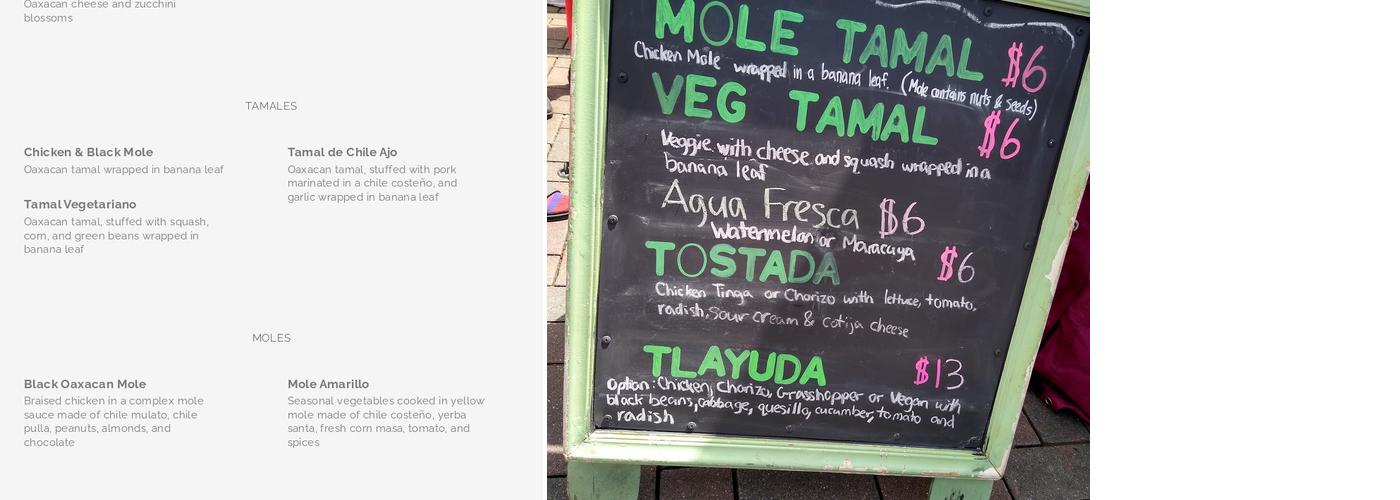 Oaxacan cheese and zucchini
blossoms
TAMALES
Chicken & Black Mole
Oaxacan tamal wrapped in banana leaf
Tamal Vegetariano
Oaxacan tamal, stuffed with squash,
corn, and green beans wrapped in
banana leaf
Tamal de Chile Ajo
Oaxacan tamal, stuffed with pork
marinated in a chile costeño, and
garlic wrapped in banana leaf
MOLES
Black Oaxacan Mole
Braised chicken in a complex mole
sauce made of chile mulato, chile
pulla, peanuts, almonds, and
chocolate
Mole Amarillo
Seasonal vegetables cooked in yellow
mole made of chile costeño, yerba
santa, fresh corn masa, tomato, and
spices
MOLE TAMAL $6
Chicken Mole wrapped in a banana leaf. (Mole contains nuts & seeds)
VEG TAMAL $6
Veggie with cheese and squash wrapped in a
banana leaf
Agua Fresca $6
Watermelon or Maracuya
TOSTADA $6
Chicken Tinga or Chorizo with lettuce, tomato,
radish, sour cream & cotija cheese
TLAYUDA $13
Option: Chicken, Chorizo, Grasshopper or Vegan with
black beans, cabbage, quesillo, cucumber, tomato and
radish